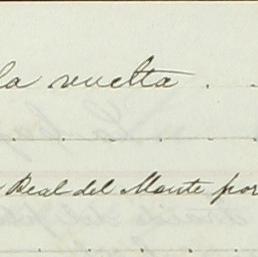 la vuelta . .
Real del Monte por